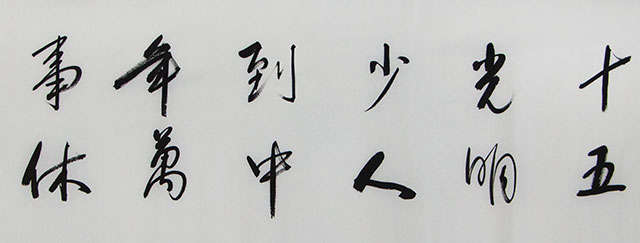 十五
光明
少人
到中
年萬
事休